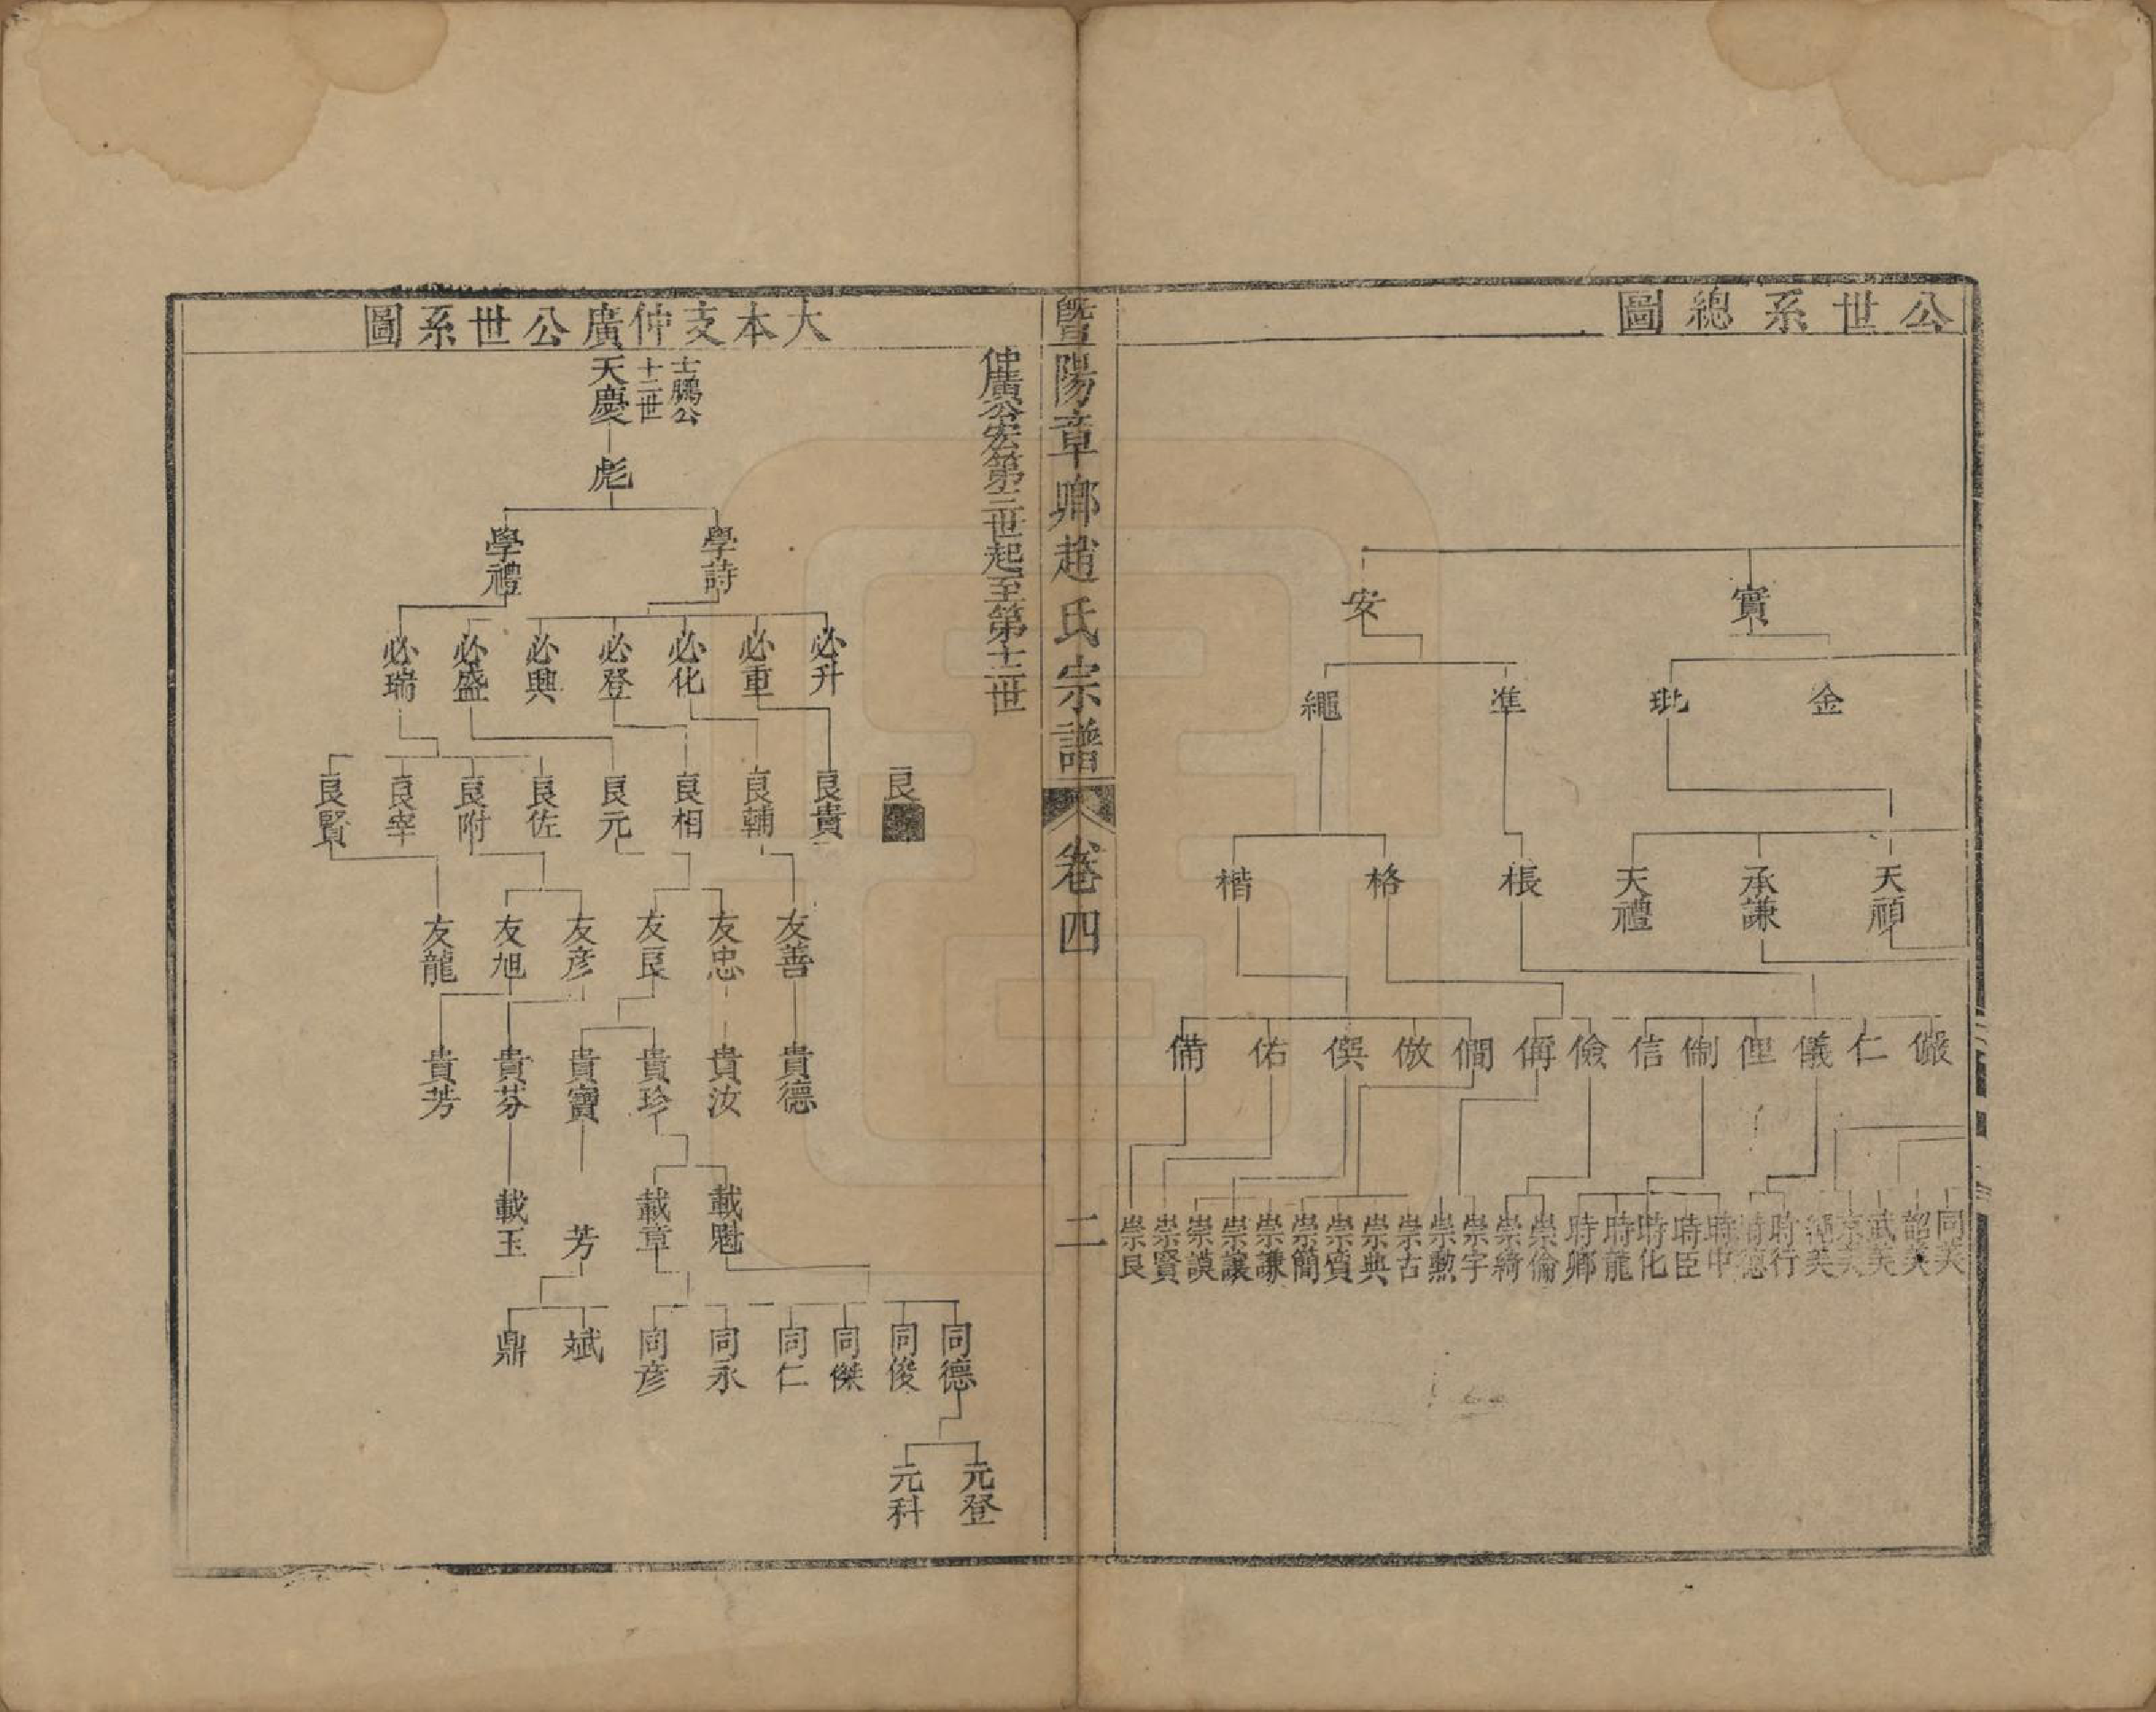 公世系總圖
實
安
金
玭
準
繩
天頎
承謙
天禮
棖
格
楷
儼
仁
儀
俚
制
信
儉
偁
僩
倣
僎
佑
備
同美
韶美
武美
京美
繩美
時德
時行
時中
時臣
時化
時龍
時卿
崇倫
崇綺
崇宇
崇勲
崇古
崇典
崇質
崇簡
崇謙
崇讓
崇謨
崇賢
崇良
暨陽章卿趙氏宗譜
卷四
二
仲廣公宏第三世起至第十二世
大本支仲廣公世系圖
士鵬公
十二世
天慶
彪
學詩
學禮
必升
必重
必化
必登
必興
必盛
必瑞
良
良貴
良輔
良相
良元
良佐
良附
良宰
良賢
友善
友忠
友良
友彦
友旭
友龍
貴德
貴汝
貴珍
貴寶
貴芬
貴芳
載魁
載章
芳
載玉
同德
同俊
同傑
同仁
同永
同彦
斌
鼎
元登
元科